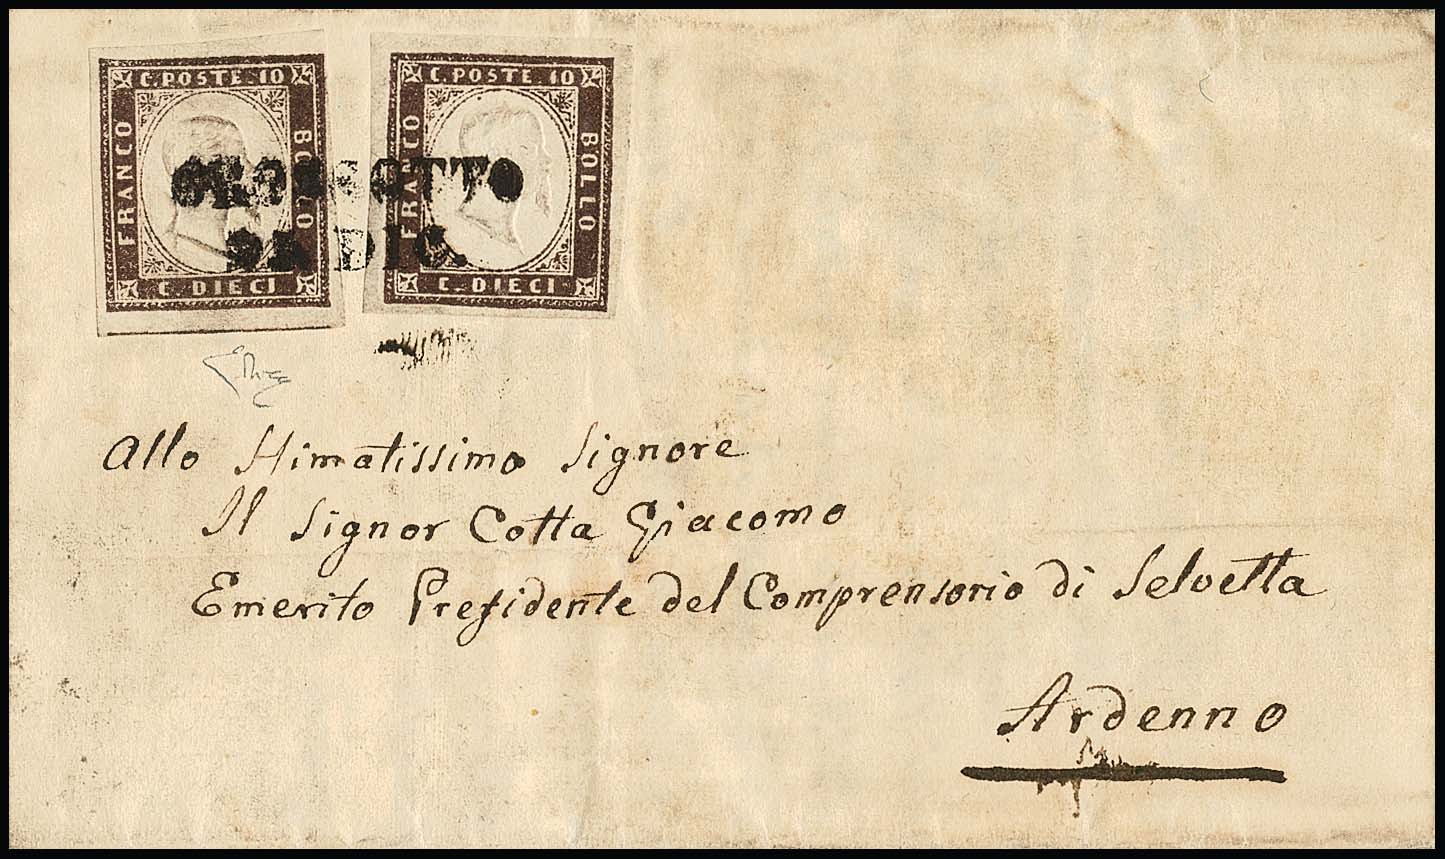 C. POSTE. 10
FRANCO
BOLLO
C. DIECI
C. POSTE. 10
FRANCO
BOLLO
C. DIECI
DIC.
Allo Stimatissimo Signore
Il Signor Cotta Giacomo
Emerito Presidente del Comprensorio di Selvetta
Ardenno